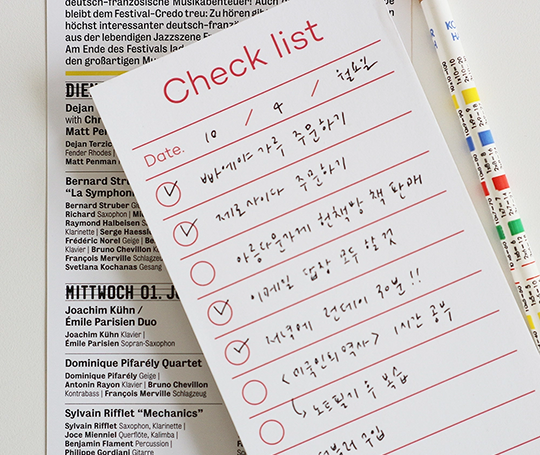 deutsch-französische Musikabenteuer! Auch
bleibt dem Festival-Credo treu: Zu hören
höchst interessanter deutsch-fran
aus der lebendigen Jazzszene
Am Ende des Festivals
günstigen
Dejan
with
Matt
Dejan
Fender Rhodes
Matt Penman
Bernard
"La
Bernard Struber
Richard Saxophon |
Raymond Halbeisen
Klarinette | Serge
Frédéric Norel Geige |
Clavier | Bruno Chevillon
François Merville Schlagzeug
Svetlana Kochanas Gesang
MITTWOCH 01.
Joachim Kühn /
Émile Parisien Duo
Joachim Kühn Klavier |
Émile Parisien Sopran-Saxophon
Dominique Pifarély Quartet
Dominique Pifarély Geige |
Antonin Rayon Klavier | Bruno Chevillon
Kontrabass | François Merville Schlagzeug
Sylvain Rifflet "Mechanics"
Sylvain Rifflet Saxophon, Klarinette |
Joce Mienniel Querflöte, Kalimba |
Benjamin Flament Percussion |
Philippe Gordiani Gitarre
Check list
Date. 10 / 4 / 월요일
빠에야 가루 주문하기
제로사이다 주문하기
아름다운가게 헌책방 책 판매
이메일 답장 모두 할 것
저녁에 런데이 30분!!
<미국인의 역사> 1시간 공부
↳ 노트필기 후 복습
구입